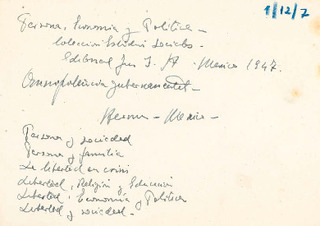 1/12/7
Persona, Economía y Política -
Colección Estudios Sociales -
Editorial Jus S. A. - Mexico 1947.
Mexico -
Persona y sociedad
Persona y familia
La libertad en crisis
Libertad, Religión y Educación
Libertad, Economía y Política
Libertad y sociedad -